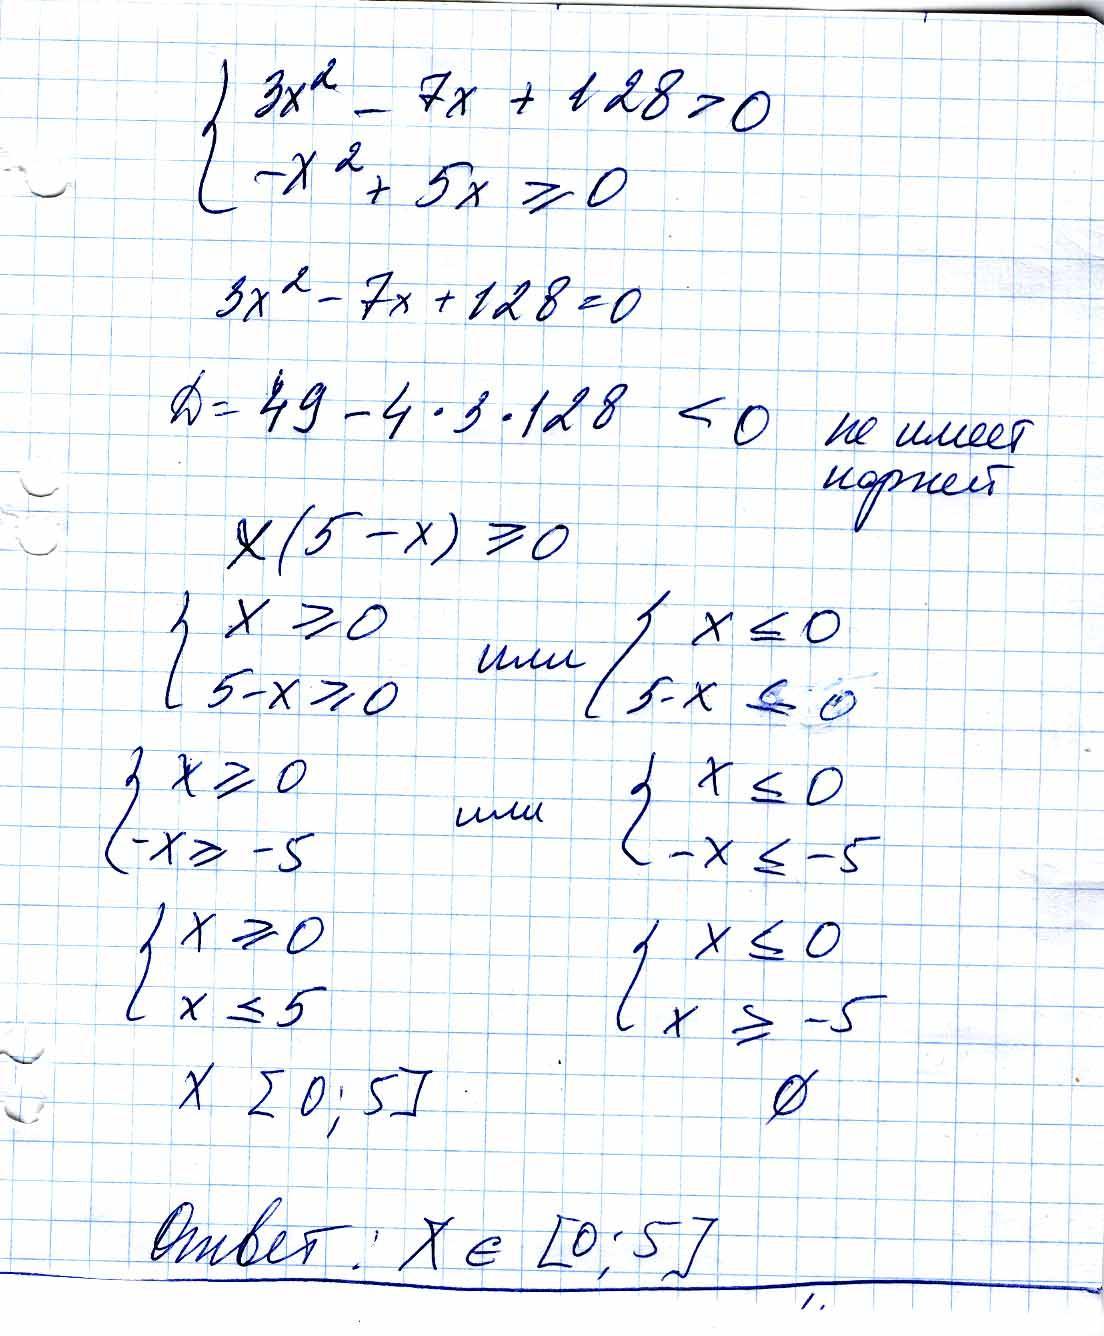 3x² - 7x + 128 > 0
-x² + 5x ⩾ 0
3x² - 7x + 128 = 0
D = 49 - 4 · 3 · 128 < 0 не имеет
корней
x(5 - x) ⩾ 0
{ x ⩾ 0 или { x ≤ 0
5-x ⩾ 0 5-x ≤ 0
{ x ⩾ 0 или { x ≤ 0
-x ⩾ -5 -x ≤ -5
{ x ⩾ 0 { x ≤ 0
x ≤ 5 x ⩾ -5
x [0; 5] ∅
Ответ: x ∈ [0; 5]